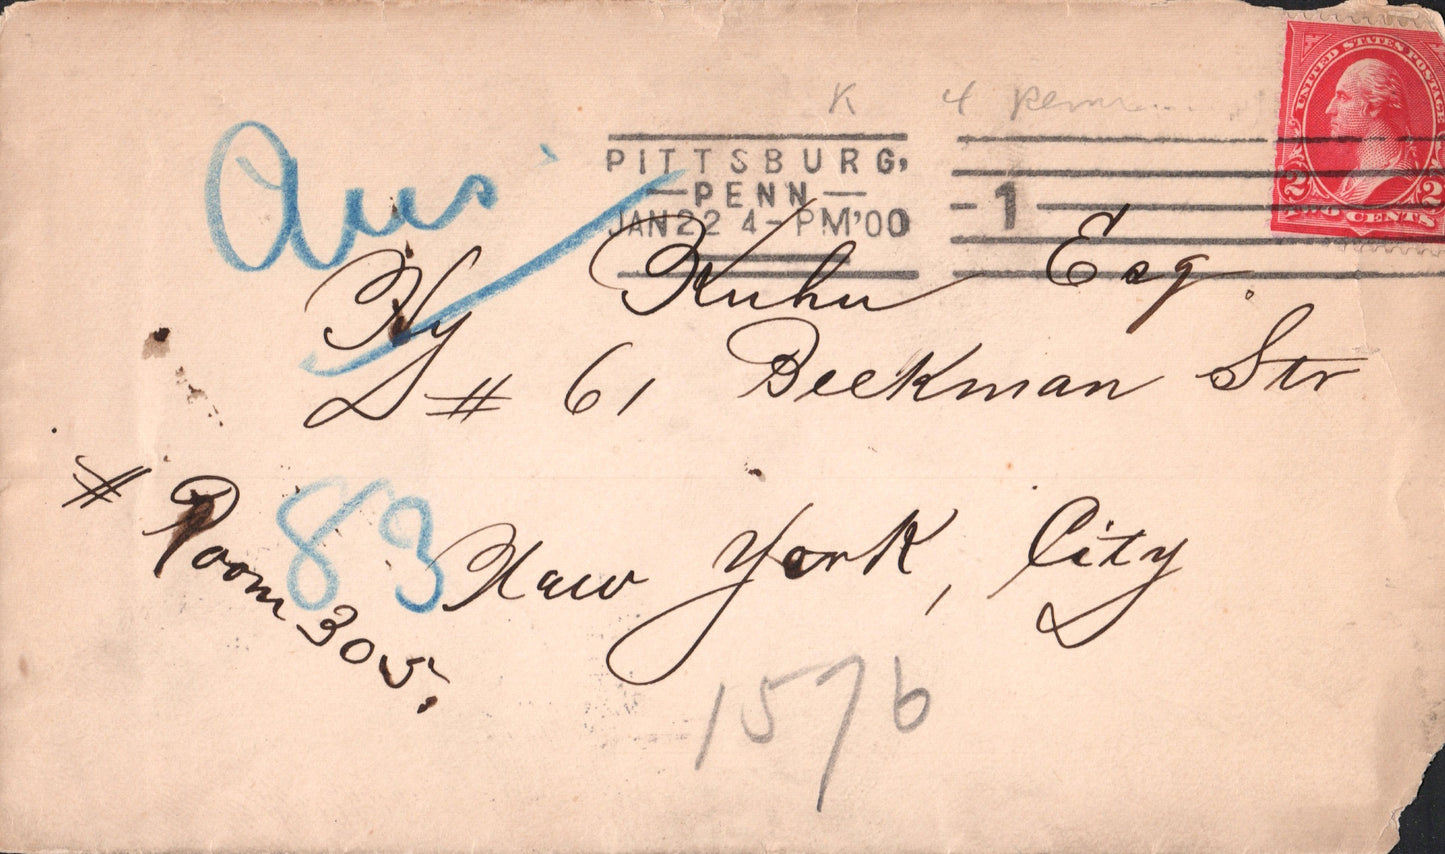 K 4
UNITED STATES POSTAGE
2 2
TWO CENTS
PITTSBURG,
PENN
JAN 22 4-PM '00
1
Ans.
Hy Kuhn Esq.
# 61 Beekman Str
# Room 305.
83
New York, City
1576